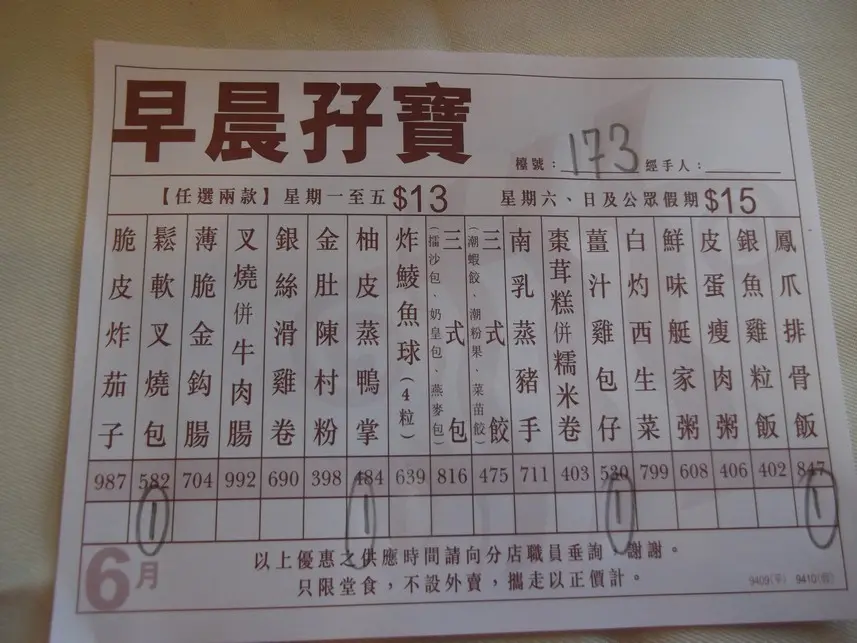 早晨孖寶
檯號：173 經手人：
【任選兩款】星期一至五 $13 星期六、日及公眾假期 $15
脆皮炸茄子
鬆軟叉燒包
薄脆金鈎腸
叉燒併牛肉腸
銀絲滑雞卷
金肚陳村粉
柚皮蒸鴨掌
炸鯪魚球(4粒)
三式包
(擂沙包、奶皇包、燕麥包)
三式餃
(潮蝦餃、潮粉果、菜苗餃)
南乳蒸豬手
棗茸糕併糯米卷
薑汁雞包仔
白灼西生菜
鮮味艇家粥
皮蛋瘦肉粥
銀魚雞粒飯
鳳爪排骨飯
987 582 704 992 690 398 484 639 816 475 711 403 530 799 608 406 402 847
1 1 1 1
6月
以上優惠之供應時間請向分店職員垂詢，謝謝。
只限堂食，不設外賣，攜走以正價計。
9409(平) 9410(假)